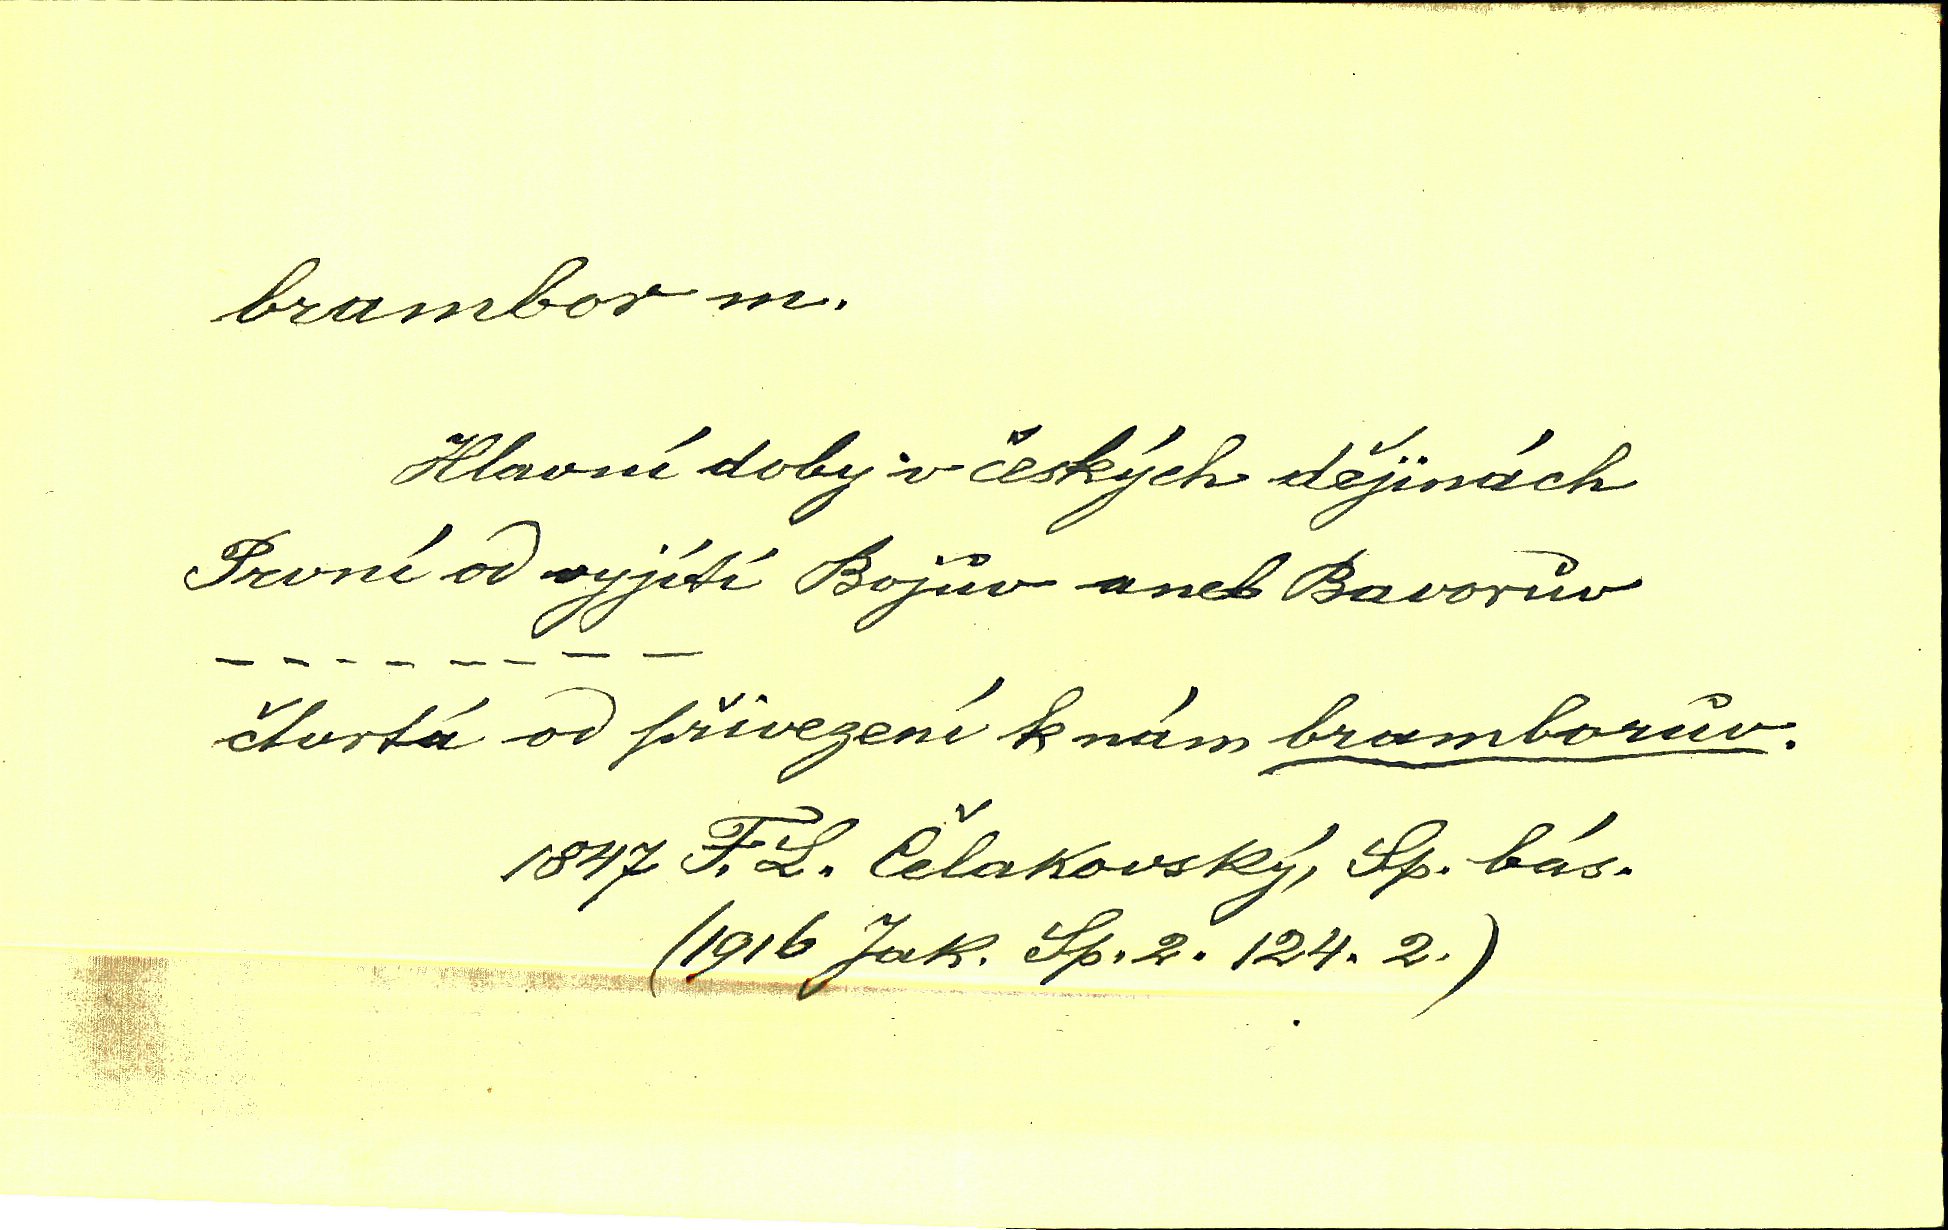 brambor m.
Hlavní doby v českých dějinách
První od vyjítí Bojův aneb Bavorův
– – – – – – – –
čtvrtá od přivezení k nám bramborův.
1847 F. L. Čelakovský, Sp. bás.
(1916 Jak. Sp. 2. 124. 2.)